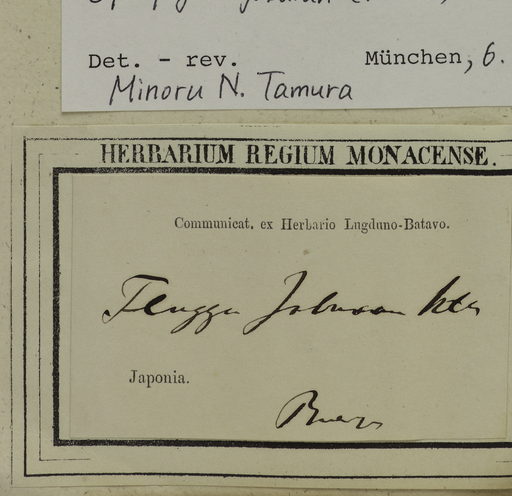 Det. - rev. München, 6.
Minoru N. Tamura
HERBARIUM REGIUM MONACENSE.
Communicat. ex Herbario Lugduno-Batavo.
Flugga
Japonia.